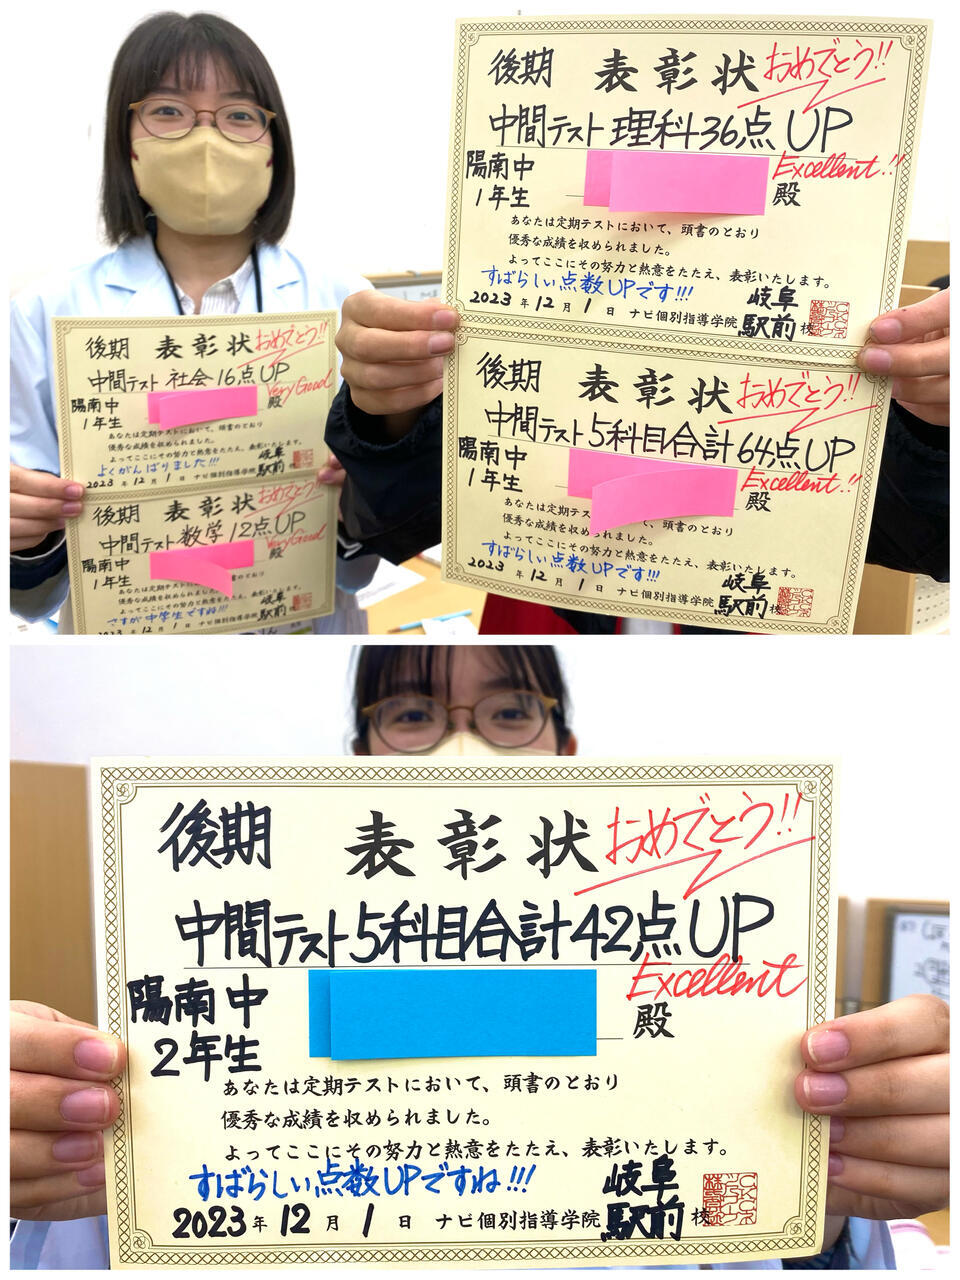 後期 表彰状 おめでとう!!
中間テスト 社会 16点UP
Very Good
陽南中
1年生
殿
あなたは定期テストにおいて、頭書のとおり
優秀な成績を収められました。
よってここにその努力と熱意をたたえ、表彰いたします。
よくがんばりました!!!
2023年12月1日 ナビ個別指導学院 岐阜駅前校
後期 表彰状 おめでとう!!
中間テスト 数学 12点UP
Very Good
陽南中
1年生
殿
あなたは定期テスト 頭書のとおり
優秀な成績を収められました。
よってここにその努力と熱意をたたえ、表彰いたします。
さすが中学生ですね!!!
2023年12月1日 ナビ個別指導学院 岐阜駅前校
後期 表彰状 おめでとう!!
中間テスト 理科 36点 UP
Excellent!!
陽南中
1年生
殿
あなたは定期テストにおいて、頭書のとおり
優秀な成績を収められました。
よってここにその努力と熱意をたたえ、表彰いたします。
すばらしい点数UPです!!!
2023年12月1日 ナビ個別指導学院 岐阜駅前校
後期 表彰状 おめでとう!!
中間テスト 5科目合計 64点UP
Excellent!!
陽南中
1年生
殿
あなたは定期テス 頭書のとおり
優秀な成績を収められました。
よってここにその努力と熱意をたたえ、表彰いたします。
すばらしい点数UPです!!!
2023年12月1日 ナビ個別指導学院 岐阜駅前校
後期 表彰状 おめでとう!!
中間テスト 5科目合計 42点 UP
Excellent
陽南中
2年生
殿
あなたは定期テストにおいて、頭書のとおり
優秀な成績を収められました。
よってここにその努力と熱意をたたえ、表彰いたします。
すばらしい点数UPですね!!!
2023年12月1日 ナビ個別指導学院 岐阜駅前校